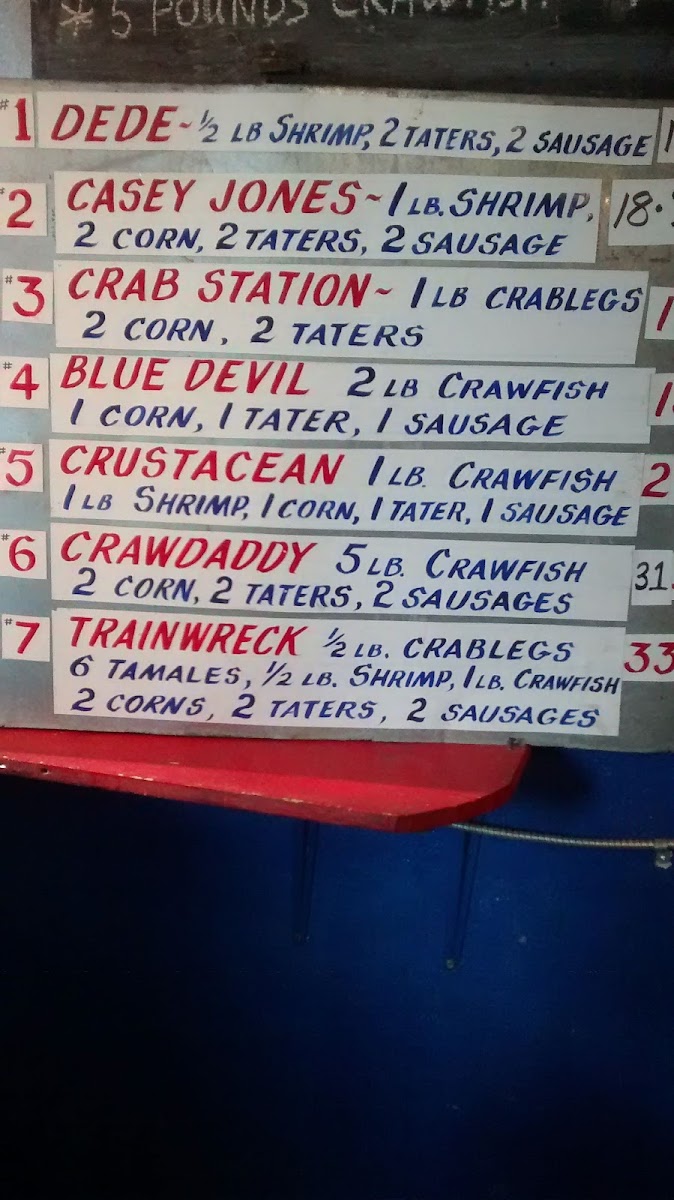 * 5 POUNDS CRAWFISH
#1 DEDE~ ½ LB SHRIMP, 2 TATERS, 2 SAUSAGE
#2 CASEY JONES~ 1 LB. SHRIMP, 18.
2 CORN, 2 TATERS, 2 SAUSAGE
#3 CRAB STATION~ 1 LB CRABLEGS
2 CORN, 2 TATERS
#4 BLUE DEVIL 2 LB CRAWFISH
1 CORN, 1 TATER, 1 SAUSAGE
#5 CRUSTACEAN 1 LB. CRAWFISH 2
1 LB SHRIMP, 1 CORN, 1 TATER, 1 SAUSAGE
#6 CRAWDADDY 5 LB. CRAWFISH 31
2 CORN, 2 TATERS, 2 SAUSAGES
#7 TRAINWRECK ½ LB. CRABLEGS 33
6 TAMALES, ½ LB. SHRIMP, 1 LB. CRAWFISH
2 CORNS, 2 TATERS, 2 SAUSAGES